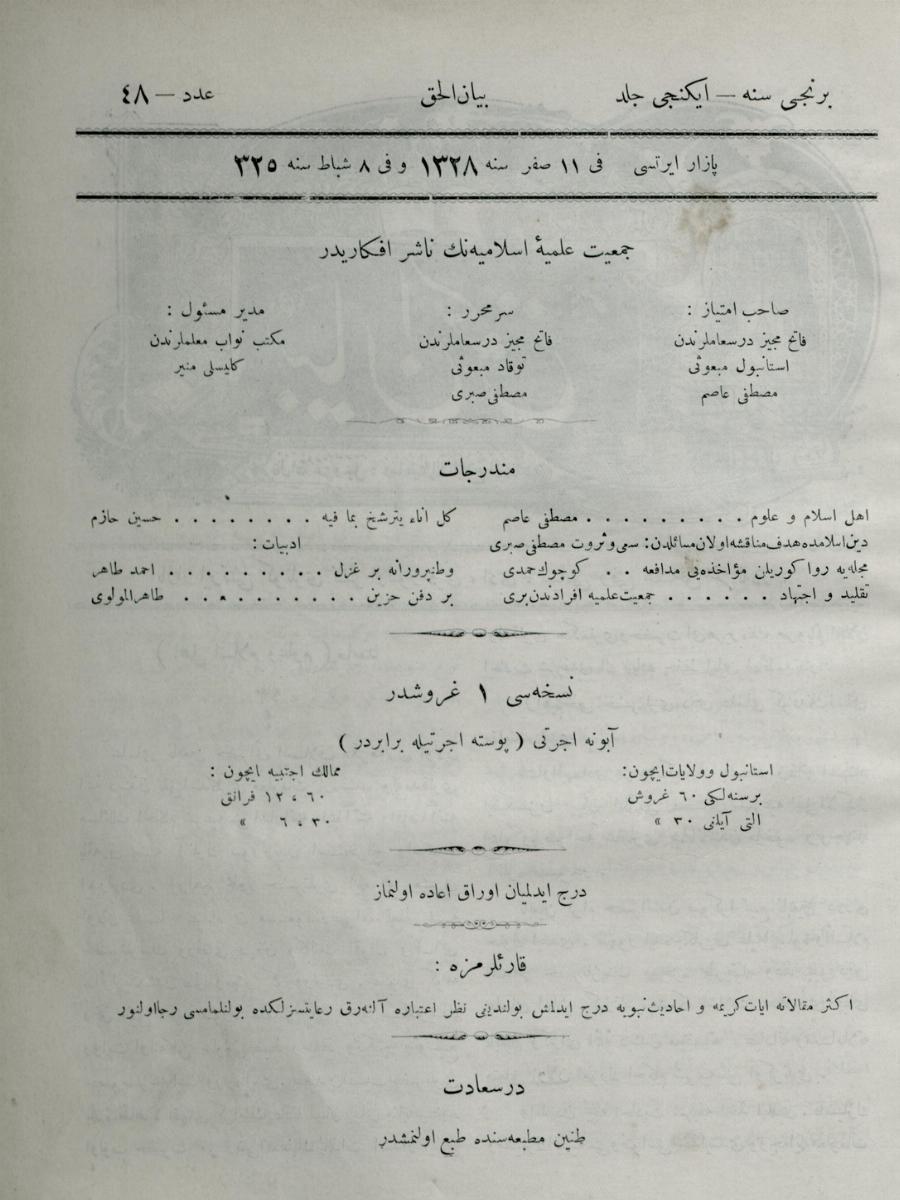 برنجى سنه — ايكنجى جلد بيان‌الحق عدد — ٤٨
پازار ايرتسى فى ١١ صفر سنه ١٣٢٨ و فى ٨ شباط سنه ٣٢٥
جمعيت علميۀ اسلاميه‌نك ناشر افكاريدر
صاحب امتياز :
فاتح مجيز درسعاملرندن
استانبول مبعوثى
مصطفى عاصم
سر محرر :
فاتح مجيز درسعاملرندن
توقاد مبعوثى
مصطفى صبرى
مدير مسئول :
مكتب نواب معلملرندن
كليسلى منير
مندرجات
اهل اسلام و علوم . . . . . . . . . مصطفى عاصم
دين‌اسلامده هدف مناقشه اولان مسائلدن : سعى و ثروت مصطفى صبرى
مجله‌يه روا كوريلن مؤاخذه‌يى مدافعه . . كوچوك حمدى
تقليد و اجتهاد . . . . . . جمعيت علميه افرادندن برى
كل اناء يترشح بما فيه . . . . . . . . حسين حازم
ادبيات :
وطنپرورانه بر غزل . . . . . . . . . احمد طاهر
بر دفن حزين . . . . . . . . . . طاهرالمولوى
نسخه‌سى ١ غروشدر
آبونه اجرتى ( پوسته اجرتيله برابردر )
استانبول و ولايات ايچون :
برسنه‌لكى ٦٠ غروش
التى آيلغى ٣٠ »
ممالك اجنبيه ايچون :
٦٠ ، ١٢ فرانق
٣٠ ، ٦ »
درج ايدلميان اوراق اعاده اولنماز
قارئلرمزه :
اكثر مقالاته ايات كريمه و احاديث نبويه درج ايدلمش بولنديغى نظر اعتباره آله‌رق رعايتسزلكده بولنلمامسى رجا اولنور
درسعادت
طنين مطبعه‌سنده طبع اولنمشدر